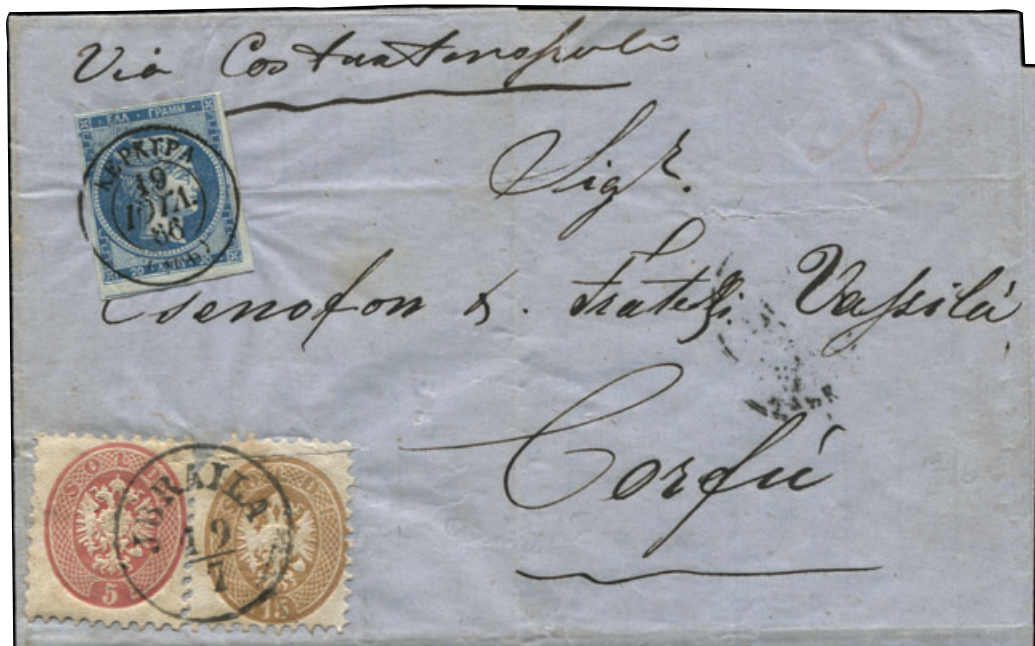 Via Costantinopoli
ΕΛΛ ΓΡΑΜΜ
ΚΕΡΚΥΡΑ
19
ΙΟΥΛ.
66
20 ΛΕΠΤ 20
Sigr.
Csenofon & Fratelli Vassilá
Corfú
SOLDI SOLDI
IBRAILA
12
7
5 15